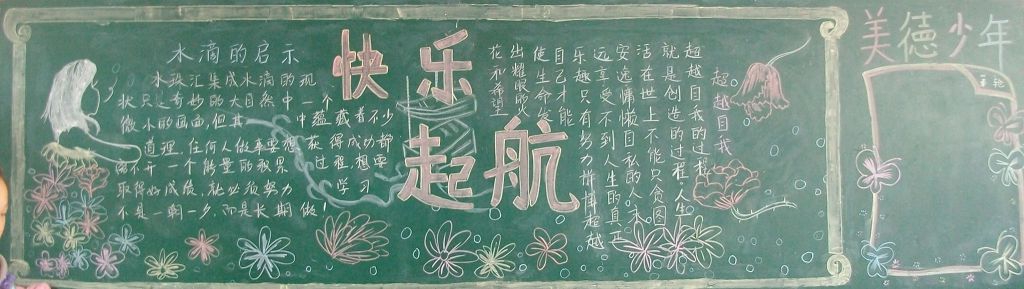 水滴的启示
水珠汇集成水滴的现
状只是奇妙的大自然中一个
微小的画面,但其中蕴藏着不少
道理,任何人做事要想获得成功都
离不开一个能量的积累过程想要
取得好成质,就必须努力学习
不是一朝一夕,而是长期做!
快乐
起航
超越自我
超越自我的过程,
就是创造的过程。人生
活在世上不能只贪图
安逸慵懒自私的人永
远享受不到人生的真正
乐趣只有努力拼搏超越
自己才能
使生命发
出耀眼的火
花和希望
美德少年